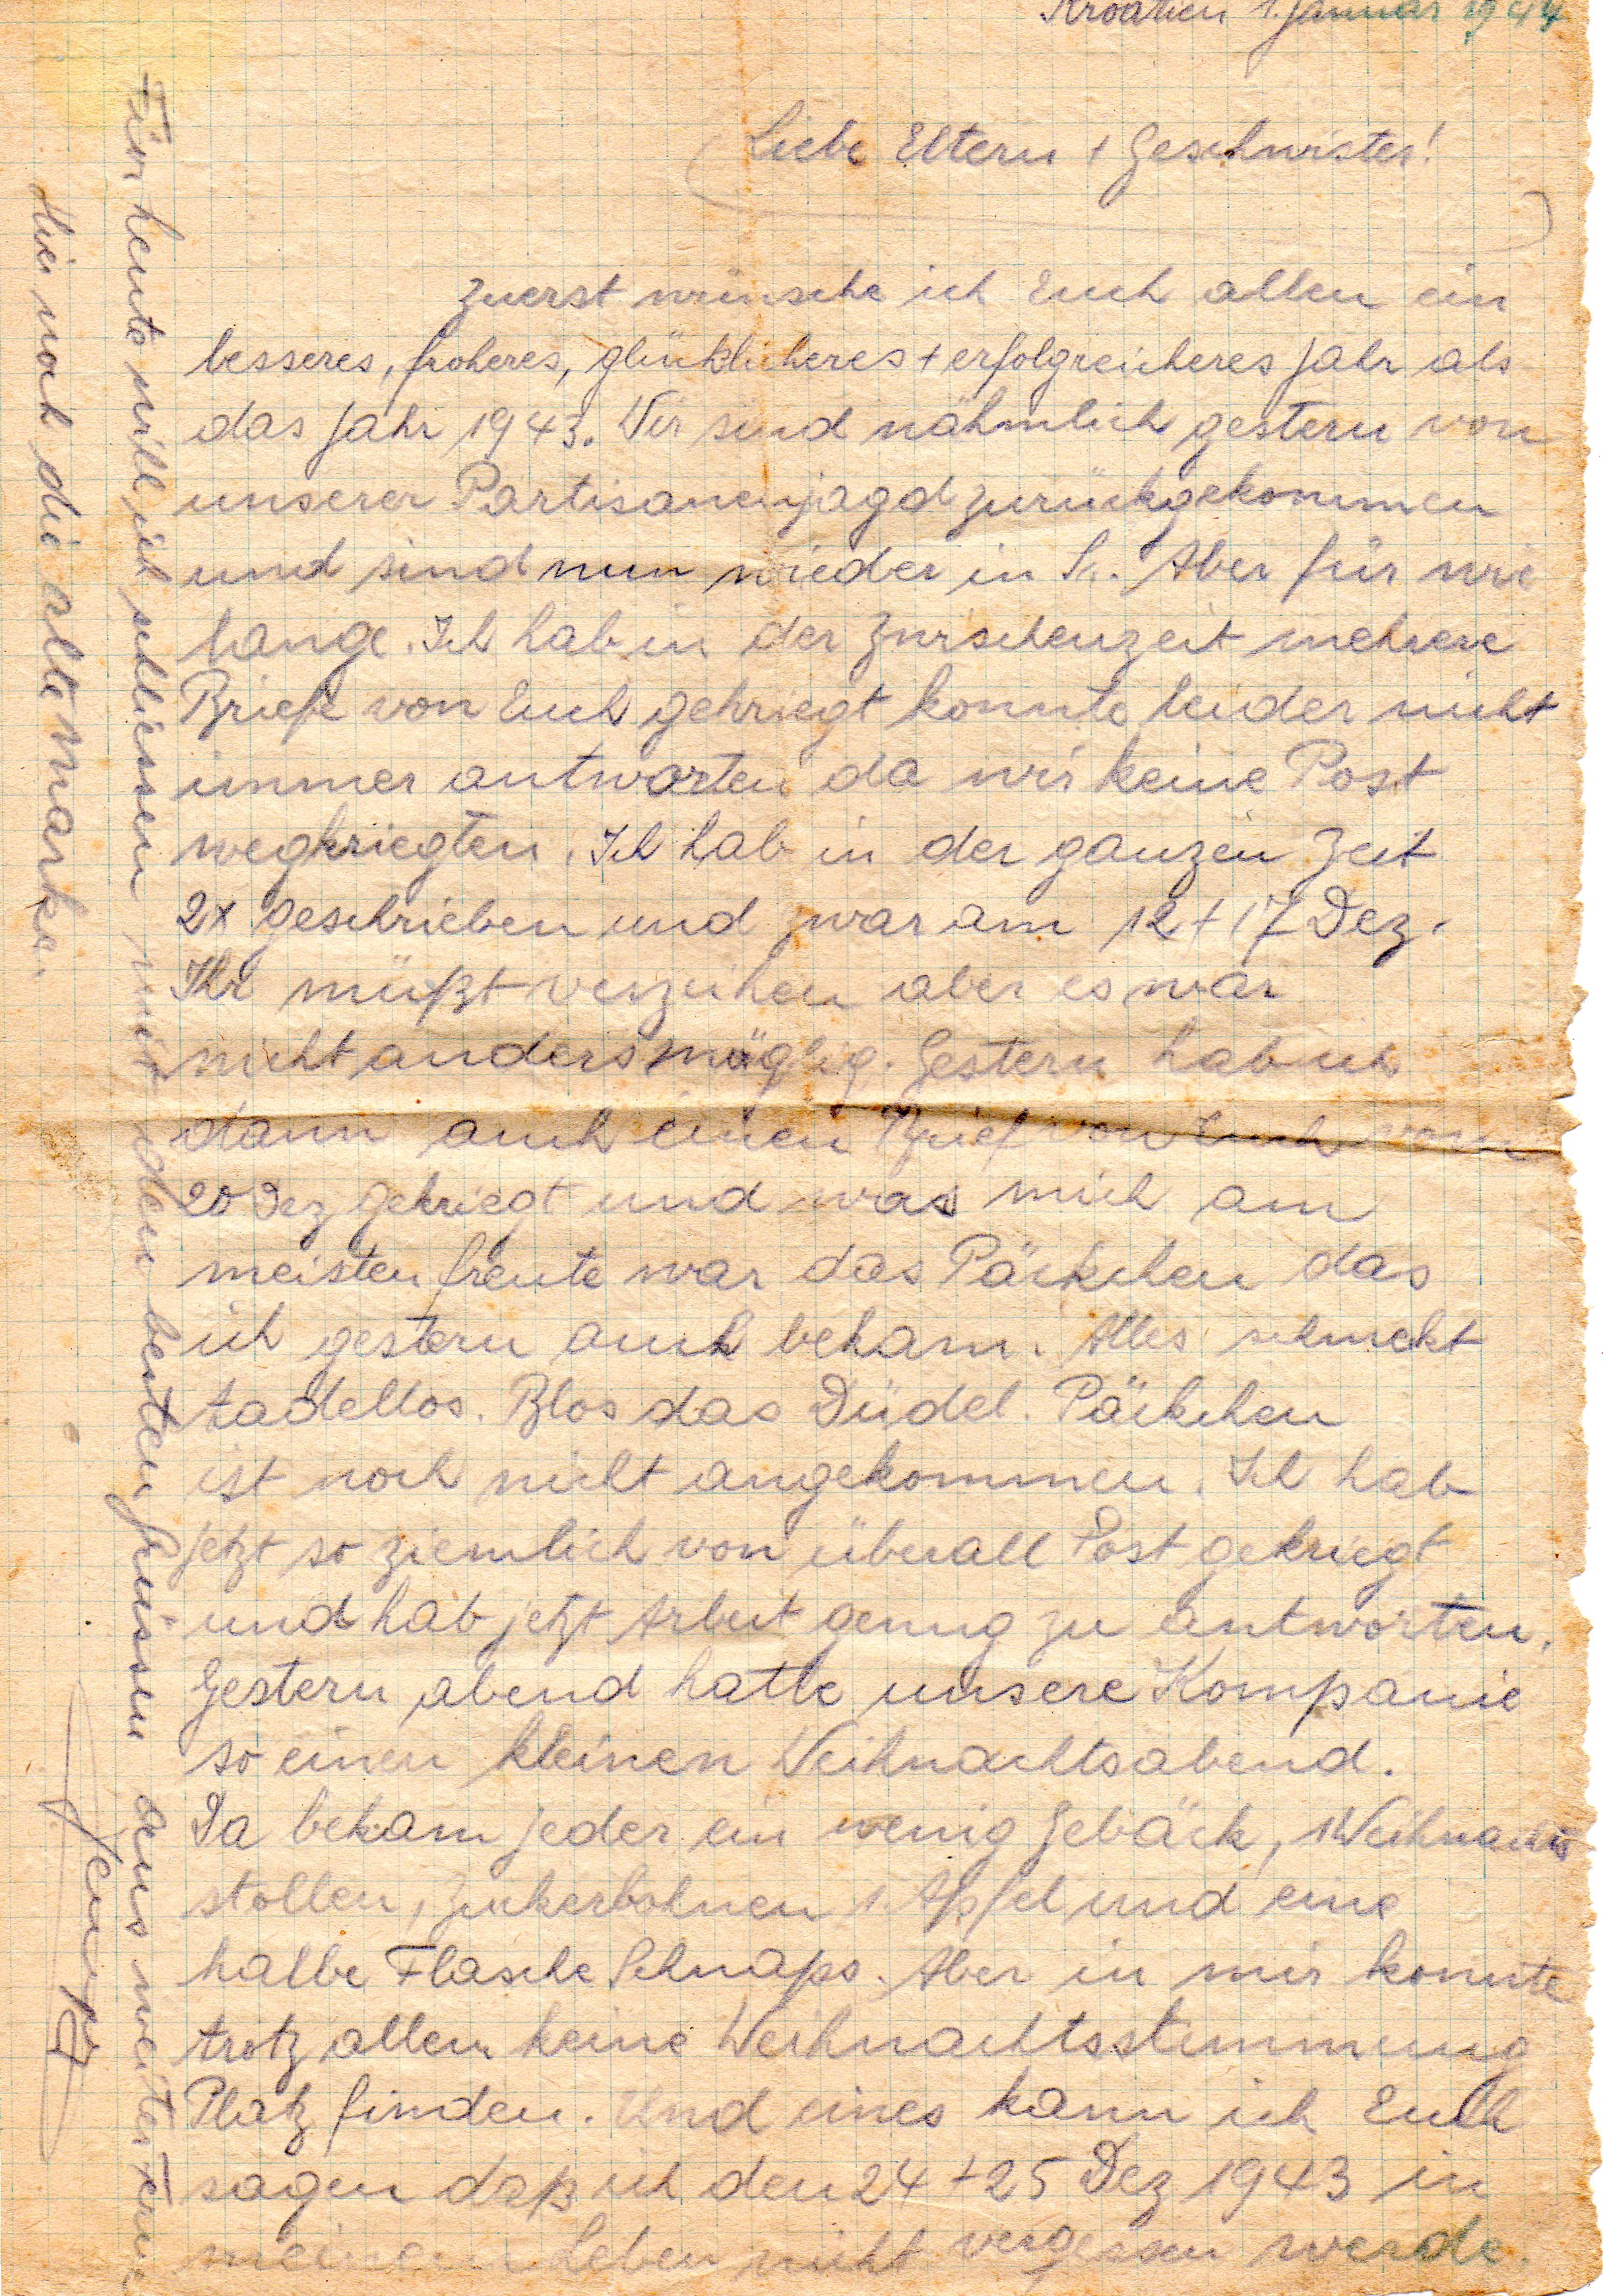 Kroatien 1. Januar 1944
Liebe Eltern + Geschwister!
Zuerst wünsche ich Euch allen ein
besseres, froheres, glücklicheres + erfolgreicheres Jahr als
das Jahr 1943. Wir sind nähmlich gestern von
unserer Partisanenjagd zurückgekommen
und sind nun wieder in S.. Aber für wie
lange. Ich hab in der Zwischenzeit mehrere
Briefe von Euch gekriegt konnte leider nicht
immer antworten da wir keine Post
wegkriegten. Ich hab in der ganzen Zeit
2x geschrieben und zwar am 12 + 17 Dez.
Ihr müßt verzeihen aber es war
nicht anders möglig. Gestern hab ich
dann auch einen Brief von Euch vom
20 Dez gekriegt und was mich am
meisten freute war das Päckchen das
ich gestern auch bekam. Alles schmekt
tadellos. Blos das Düdel. Päckchen
ist noch nicht angekommen. Ich hab
jetzt so ziemlich von überall Post gekriegt
und hab jetzt Arbeit genug zu antworten.
Gestern abend hatte unsere Kompanie
so einen kleinen Weihnachtsabend.
Da bekam jeder ein wenig Gebäck, 1 Weihnachts
stollen, Zuckerbohnen 1. Apfel und eine
halbe Flasche Schnaps. Aber in mir konnte
trotz allem keine Weihnachtsstimmung
Platz finden. Und eines kann ich Euch
sagen daß ich den 24 + 25 Dez 1943 in
meinem Leben nicht vergessen werde.
Für heute will ich schliessen mit den besten Grüssen aus weiter Ferne
Hier noch die alte Marke.